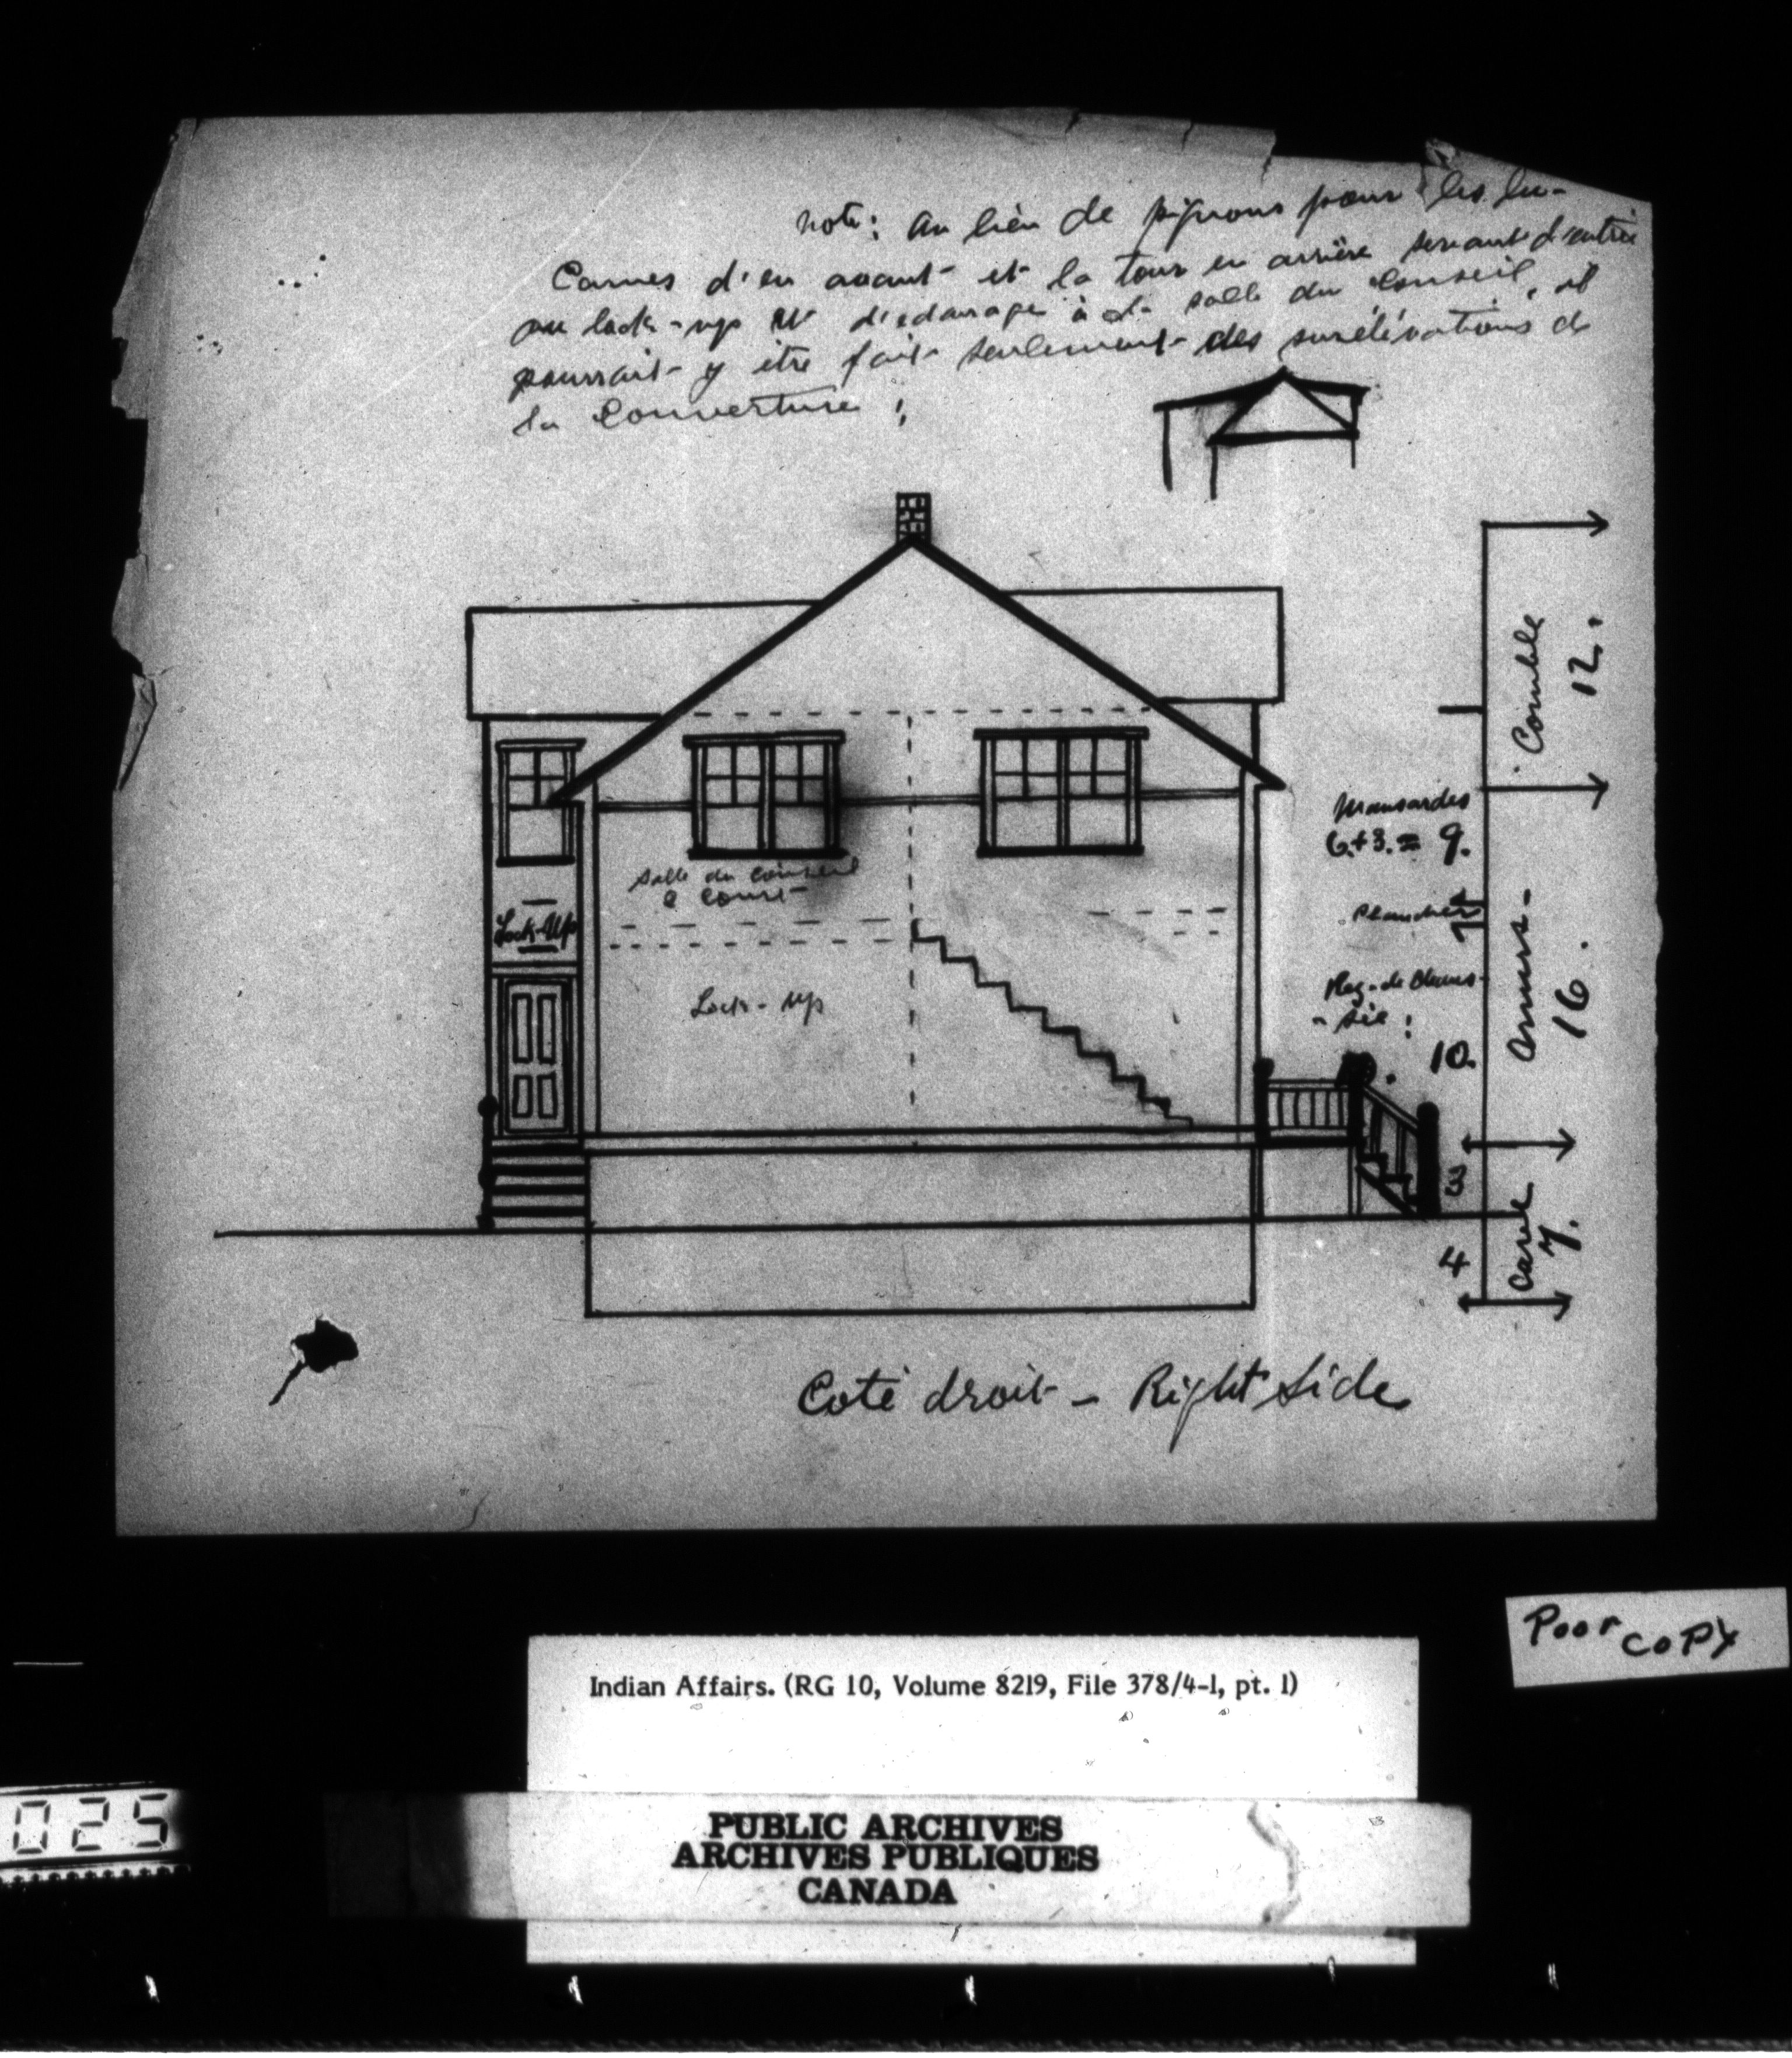 note: au lieu de pignons pour les lu-
carnes d'en avant et la tour en arrière servant d'entrée
au lock-up et d'éclairage à la salle du conseil, il
pourrait y être fait seulement des surélévations de
la couverture ;
Comble
12.
Mansardes
6+3. = 9.
Salle du conseil
& Court
Lock-Up
Plancher
Murs-
16.
Lock-up
Rez-de-Chaus-
-sée :
10.
3
Cave
7.
4
Coté droit - Right Side
Poor copy
Indian Affairs. (RG 10, Volume 8219, File 378/4-1, pt. 1)
025
PUBLIC ARCHIVES
ARCHIVES PUBLIQUES
CANADA